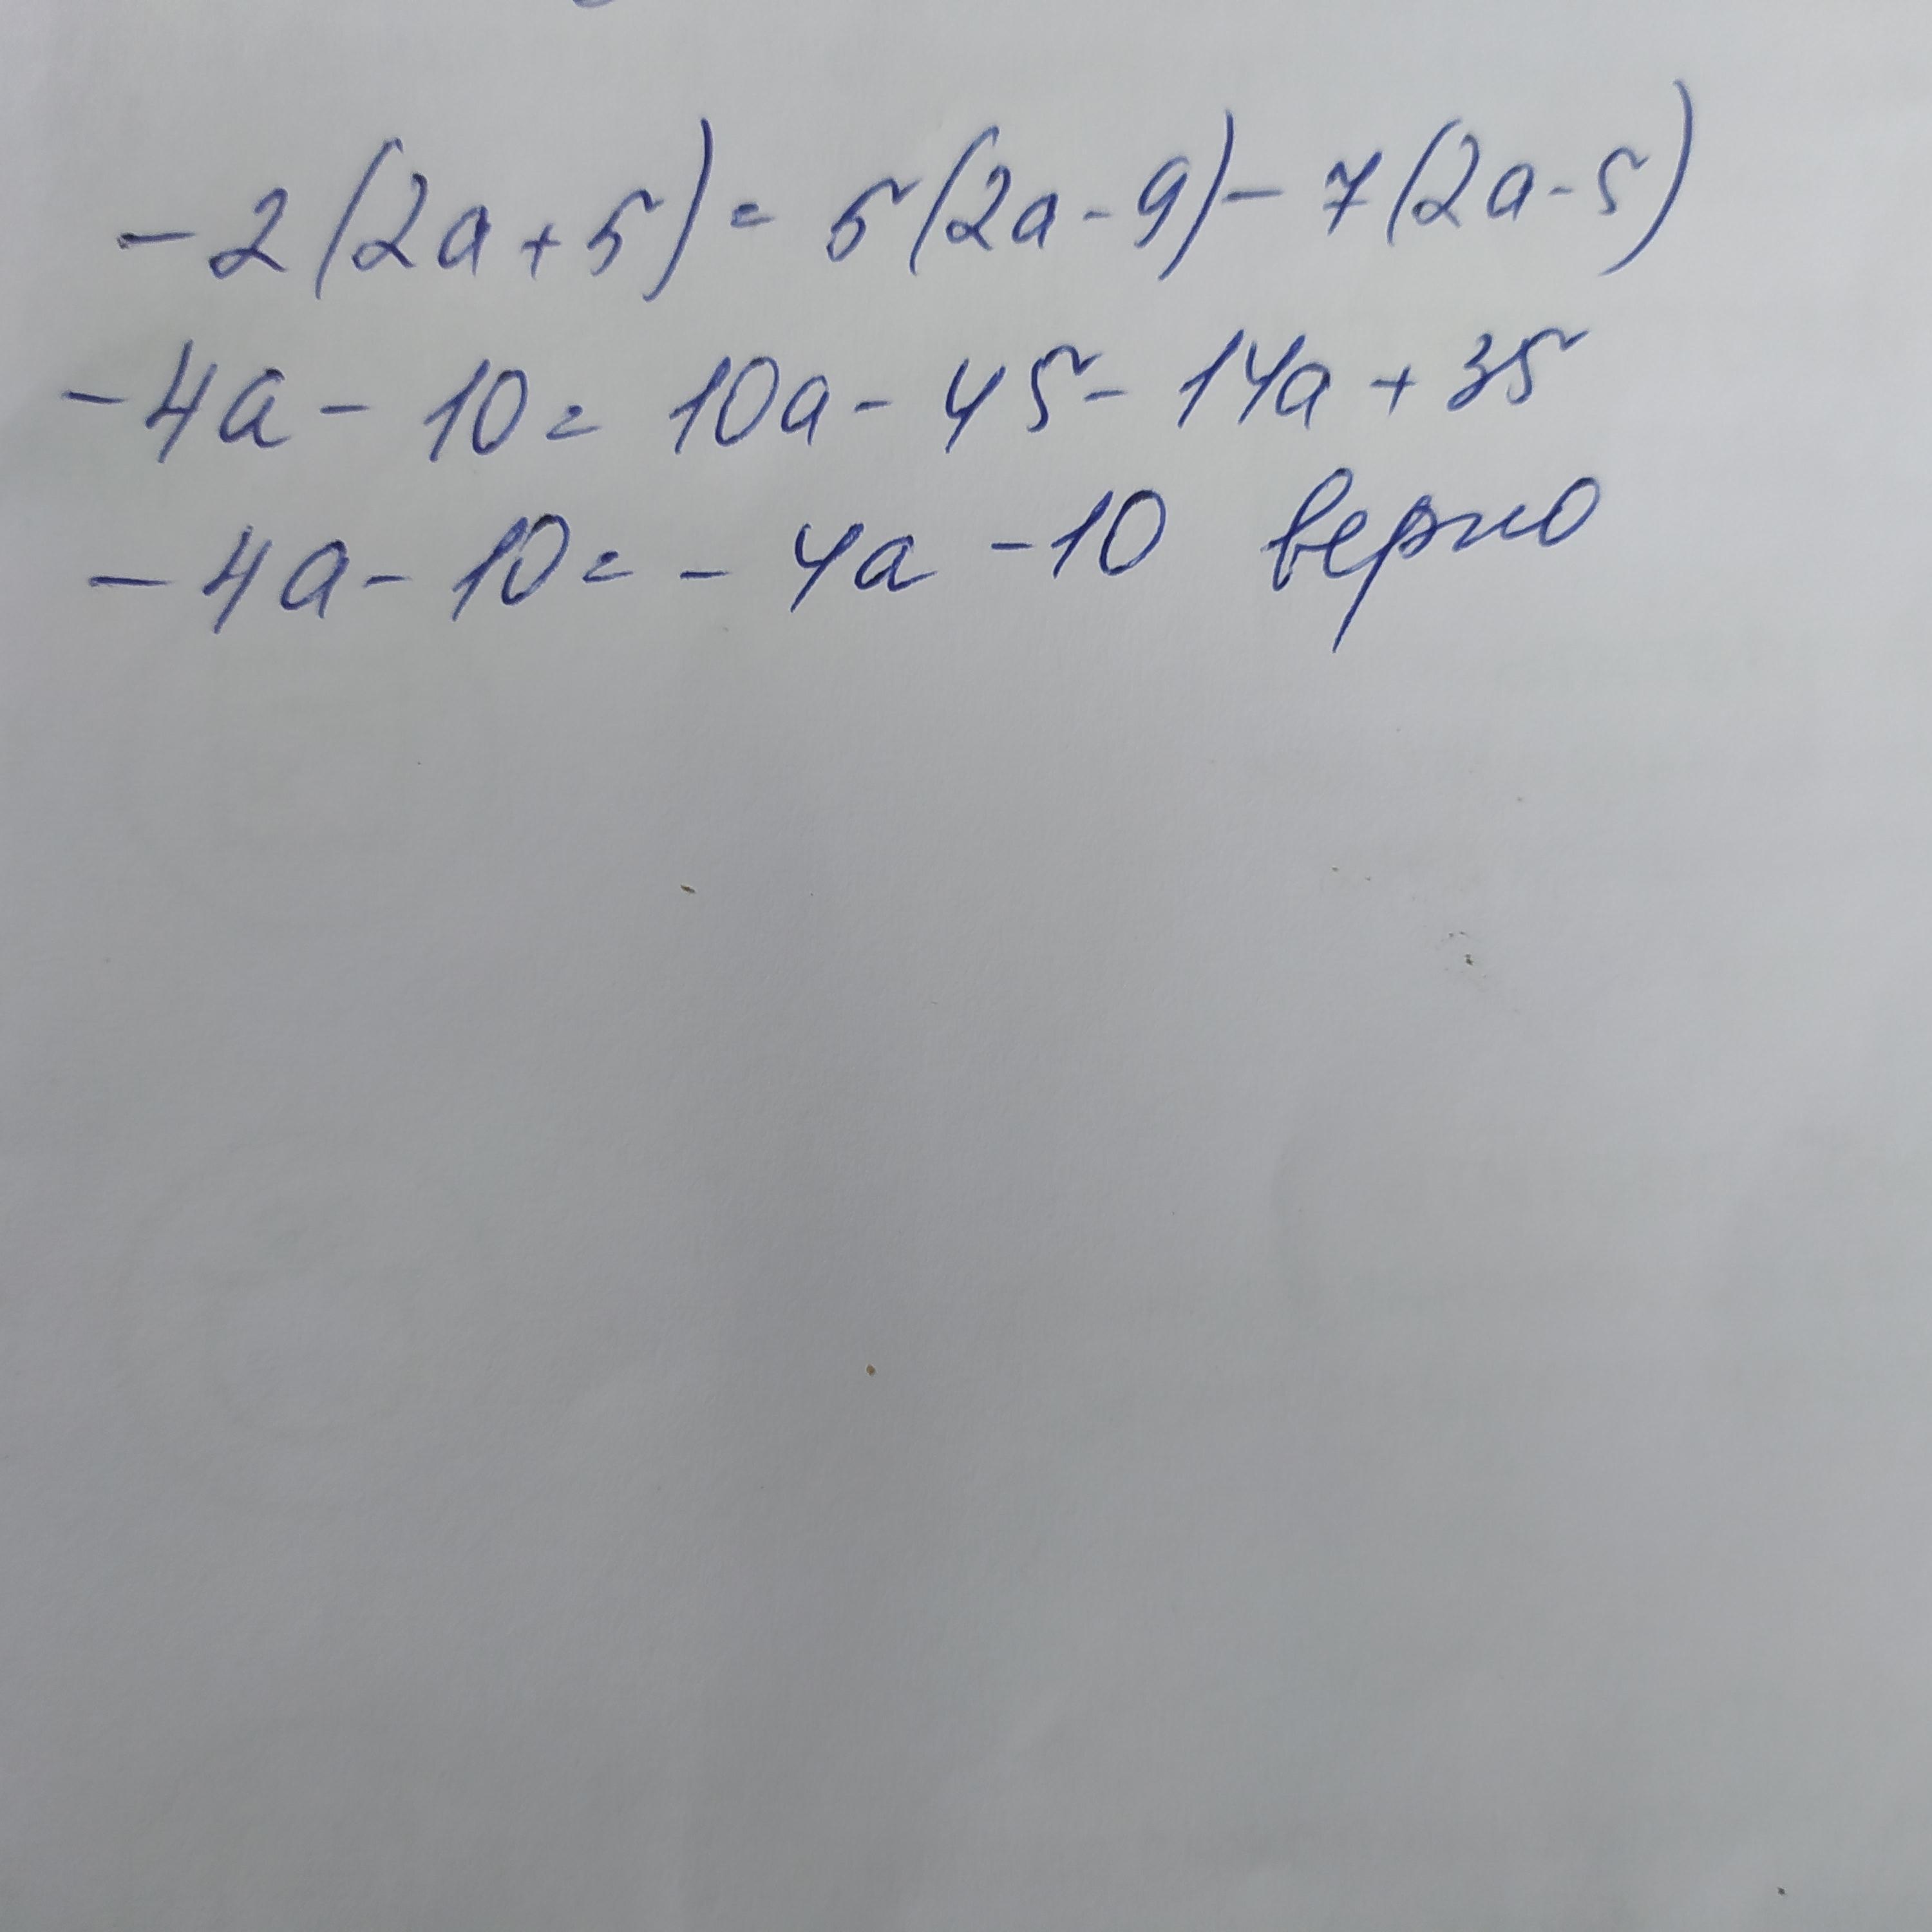 -2(2a+5)=5(2a-9)-7(2a-5)
-4a-10=10a-45-14a+35
-4a-10=-4a-10 верно